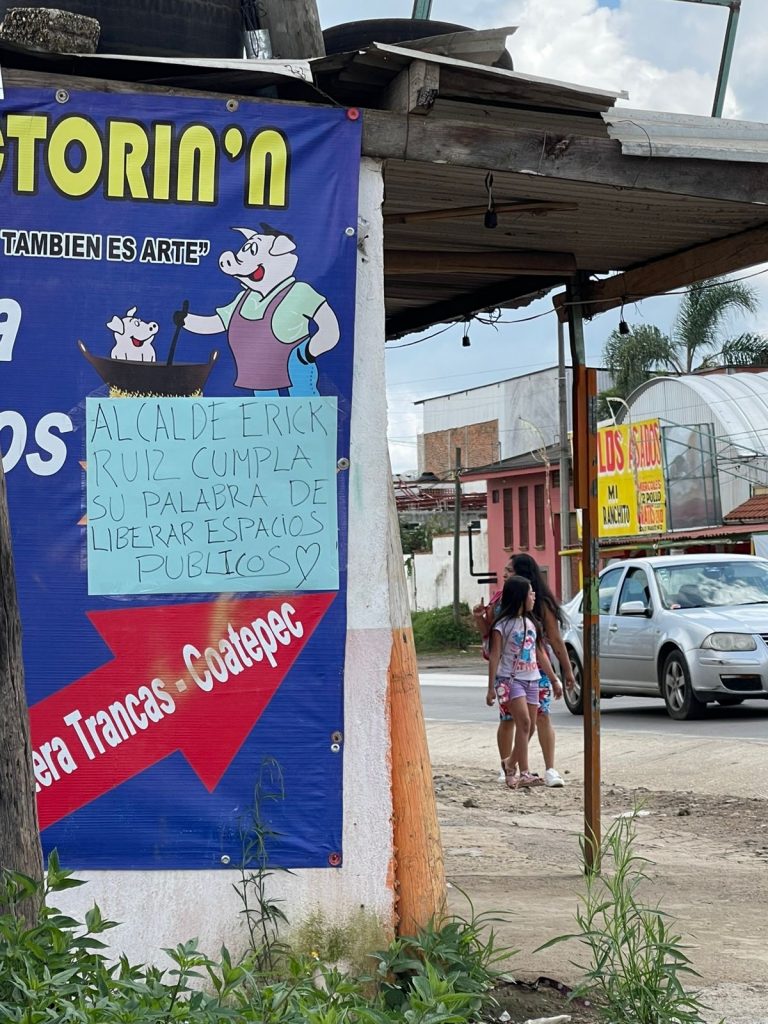 CTORIN'N
TAMBIEN ES ARTE"
a
os
ALCALDE ERICK
RUIZ CUMPLA
SU PALABRA DE
LIBERAR ESPACIOS
PUBLICOS♡
era Trancas - Coatepec
LOS ASADOS
MI
RANCHITO
MIERCOLES
1/2 POLLO
GRATIS